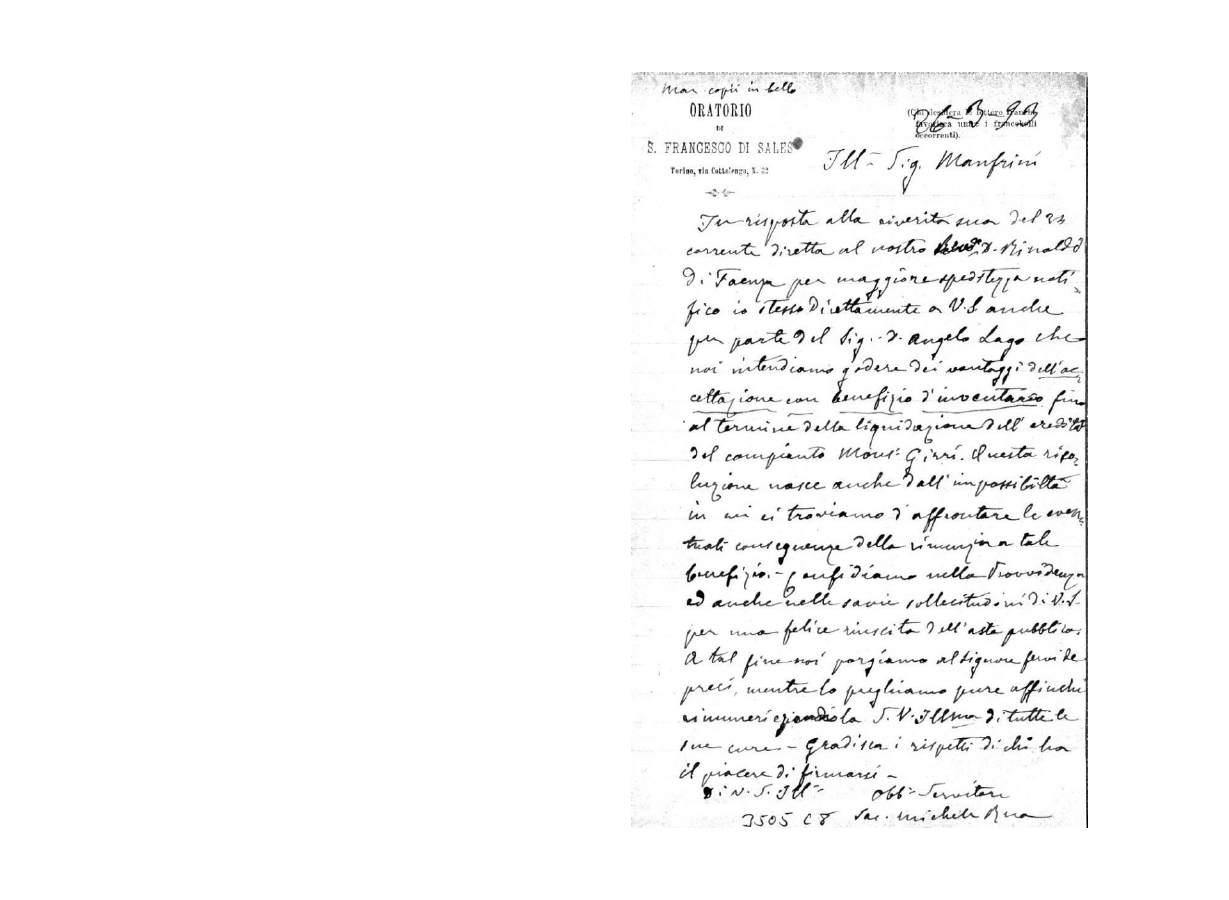 Man copii in bello
ORATORIO
DI
S. FRANCESCO DI SALES
Torino, via Cottolengo, N. 32
(Chi desidera le lettere franche
favorisca unire i francobolli
occorrenti).
26-3-93
Ill- Sig. Manfrini
In risposta alla riverita sua del 23
corrente diretta al nostro D. Rinaldi
di Faenza per maggiore speditezza noti-
fico io stesso direttamente a V.S anche
per parte del Sig. D. Angelo Lago che
noi intendiamo godere dei vantaggi dell'ac-
cettazione con benefizio d'inventario fino
al termine della liquidazione dell' eredità
del compianto Mons. Girri. Questa riso-
luzione nasce anche dall'impossibiltà
in cui ci troviamo d'affrontare le even-
tuali conseguenze della rinunzia a tale
benefizio. - Confidiamo nella Provvidenza
ed anche nelle savie sollecitudini di V.S.
per una felice riuscita dell'asta pubblica.
A tal fine noi porgiamo al Signore fervide
preci, mentre lo preghiamo pure affinchè
rimuneri la S.V. Illma di tutte le
sue cure - Gradisca i rispetti di chi ha
il piacere di firmarsi -
Di V. S. Ill-
Obb- Servitore
3505 C8 Sac. Michele Rua